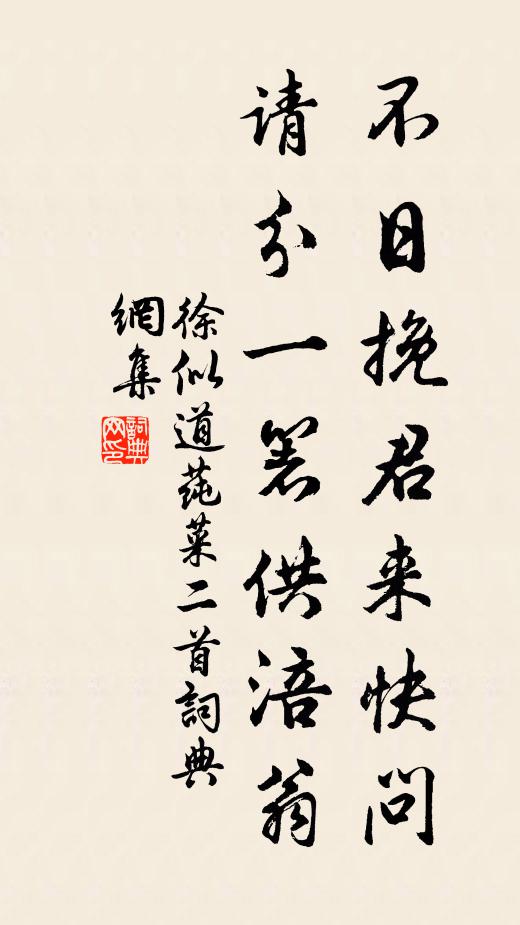 不日挽君来快问
请分一箸供涪翁
徐似道莼菜二首詞典
網集
詞典
网印